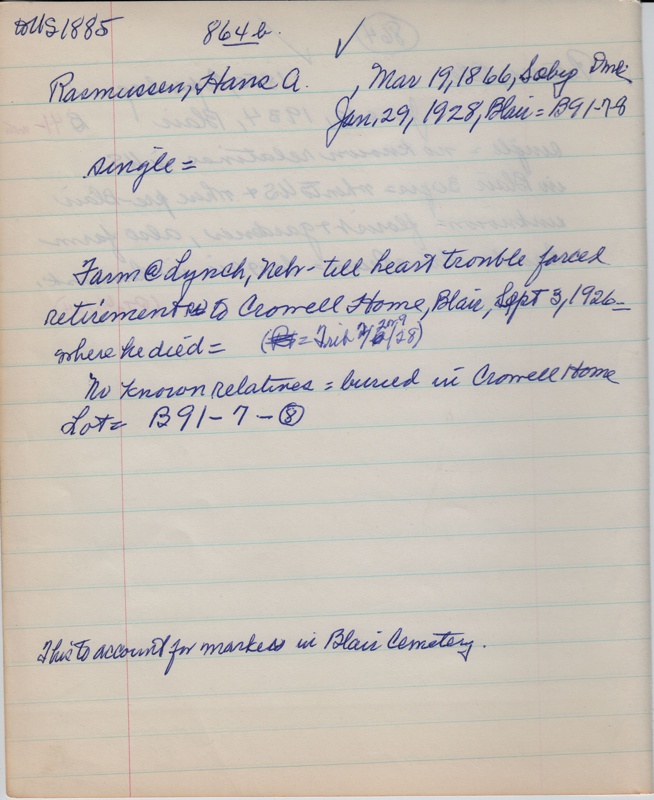 US 1885 864b. ✓
Rasmussen, Hans A. , Mar 19, 1866, Soby Dmk
Jan, 29, 1928, Blair = B91-7-8
single =
Farm @ Lynch, Nebr - till heart trouble forced
retirement to Crowell Home, Blair, Sept 3, 1926 -
where he died = ( = Trib 2/ /28)
No known relatives = buried in Crowell Home
Lot = B91-7-⑧
This to account for markers in Blair Cemetery.